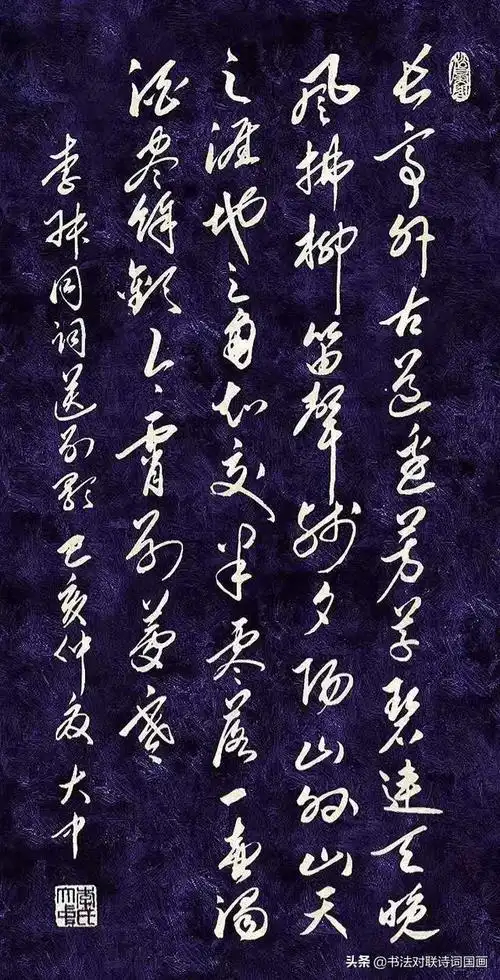 长亭外古道边芳草碧连天晚
风拂柳笛聲残夕阳山外山天
之涯地之角知交半零落一壶浊
酒尽馀歡今宵别梦寒
李叔同词送别歌 己亥仲夏大中
头条 @书法对联诗词国画